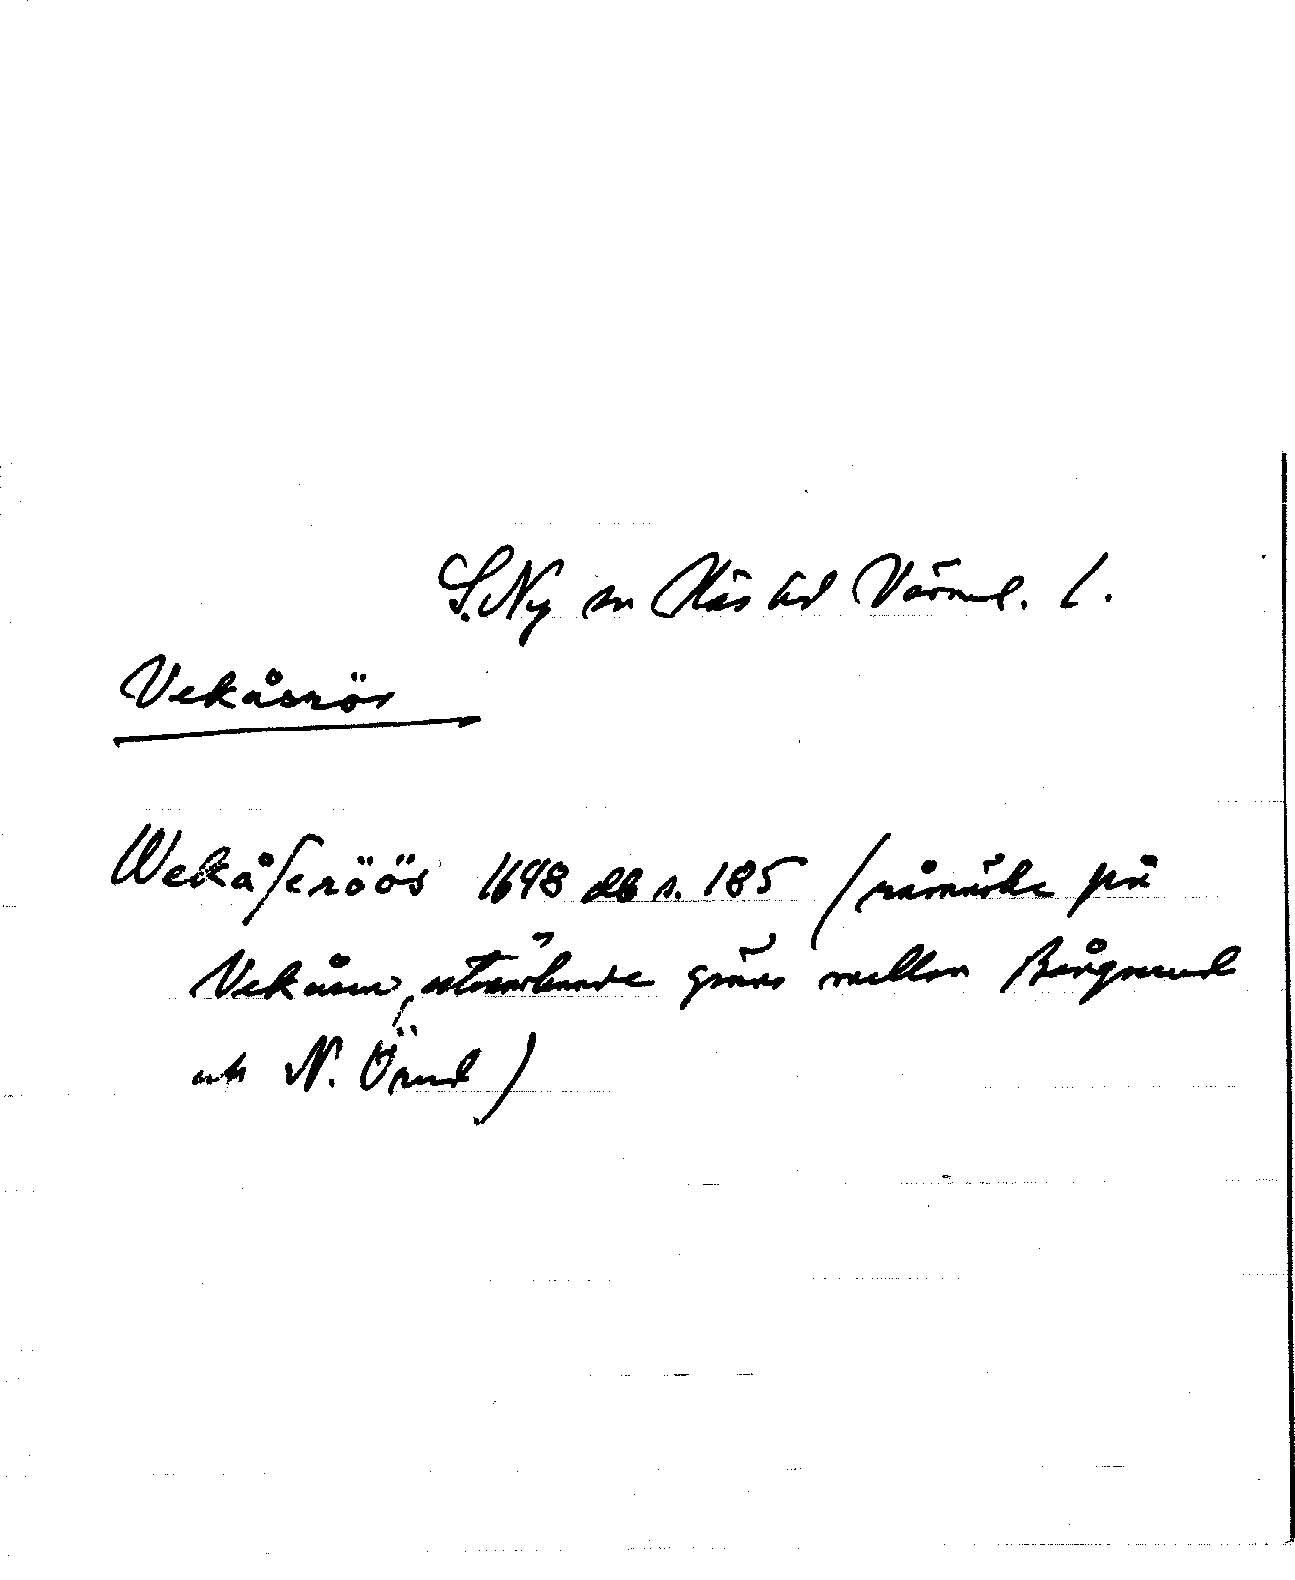 S. Ny sn Näs hd Värml. l.
Vekåsrös
Wekåſeröös 1698 db s. 185 (råmärke på
Vekåsen, utmärkande gräns mellan Bergerud
och N. Örud)